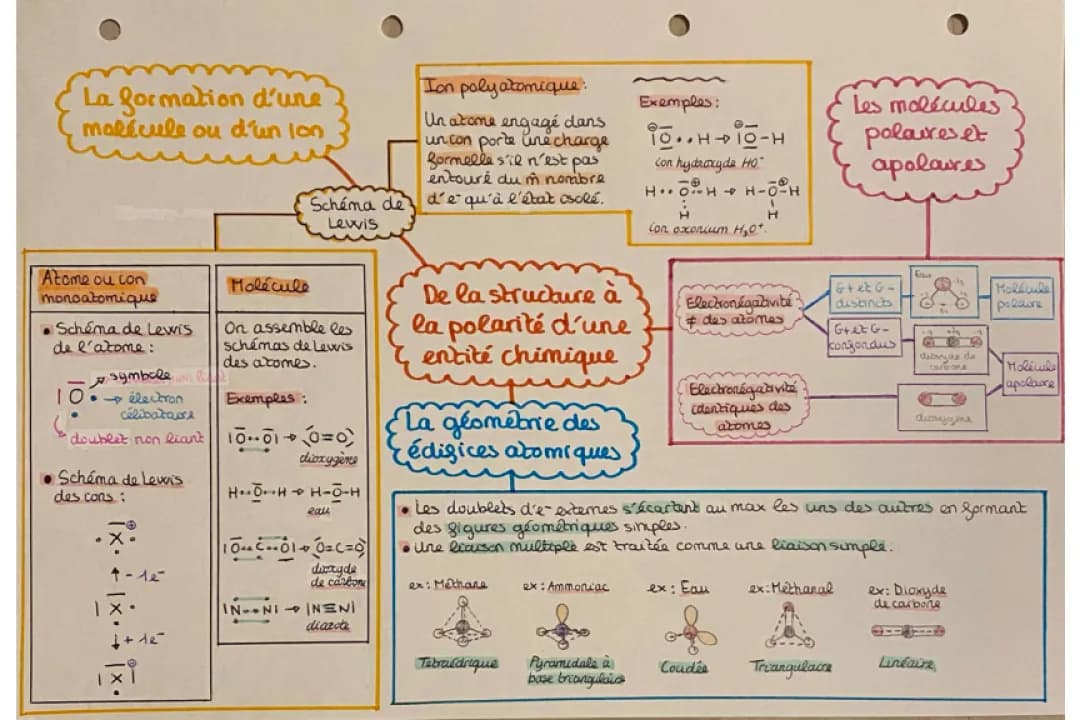 La formation d'une
molécule ou d'un ion
Schéma de
Lewis
Ion polyatomique :
Un atome engagé dans
un ion porte une charge
formelle s'il n'est pas
entouré du m̂ nombre
d'e⁻ qu'à l'état isolé.
Exemples :
ion hydroxyde HO⁻
ion oxonium H₃O⁺.
Les molécules
polaires et
apolaires
Atome ou ion
monoatomique
• Schéma de Lewis
de l'atome :
symbole
électron
célibataire
doublet non liant
• Schéma de Lewis
des ions :
X
↑ - 1e⁻
X
↓ + 1e⁻
X
Molécule
On assemble les
schémas de Lewis
des atomes.
Exemples :
dioxygène
H-O-H
eau
O=C=O
dioxyde
de carbone
|N≡N|
diazote
De la structure à
la polarité d'une
entité chimique
Electronégativité
≠ des atomes
G+ et G-
distincts
Eau
Molécule
polaire
G+ et G-
confondus
dioxyde de
carbone
Molécule
apolaire
Electronégativité
identiques des
atomes
dioxygène
La géométrie des
édifices atomiques
• Les doublets d'e⁻ externes s'écartent au max les uns des autres en formant
des figures géométriques simples.
• Une liaison multiple est traitée comme une liaison simple.
ex : Méthane
ex : Ammoniac
ex : Eau
ex : Méthanal
ex : Dioxyde
de carbone
Tétraédrique
Pyramidale à
base triangulaire
Coudée
Triangulaire
Linéaire